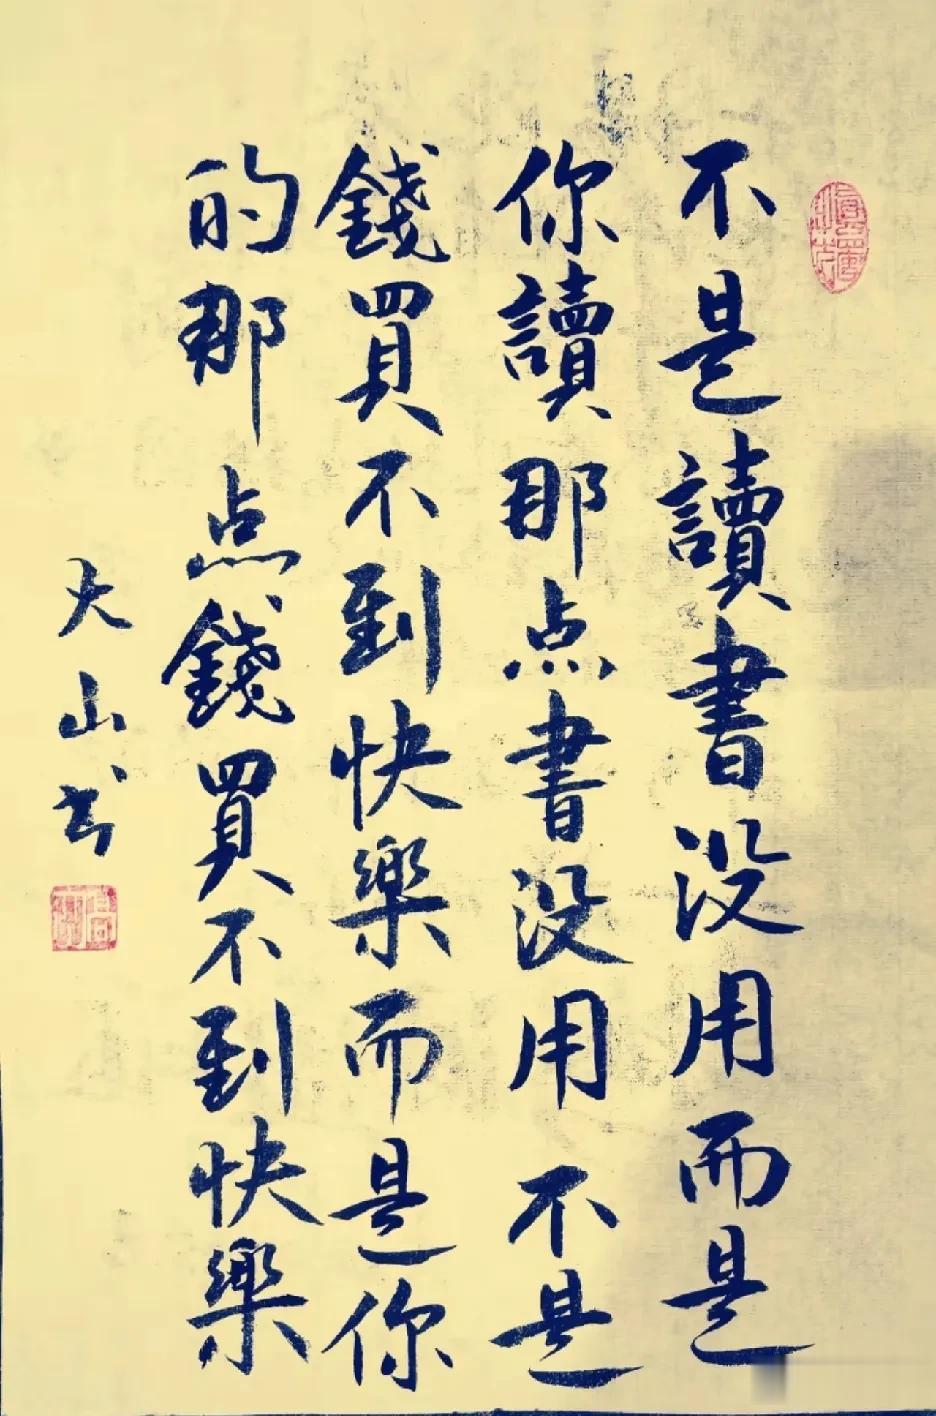 不是讀書没用而是
你讀那点書没用不是
錢買不到快樂而是你
的那点錢買不到快樂
大山书